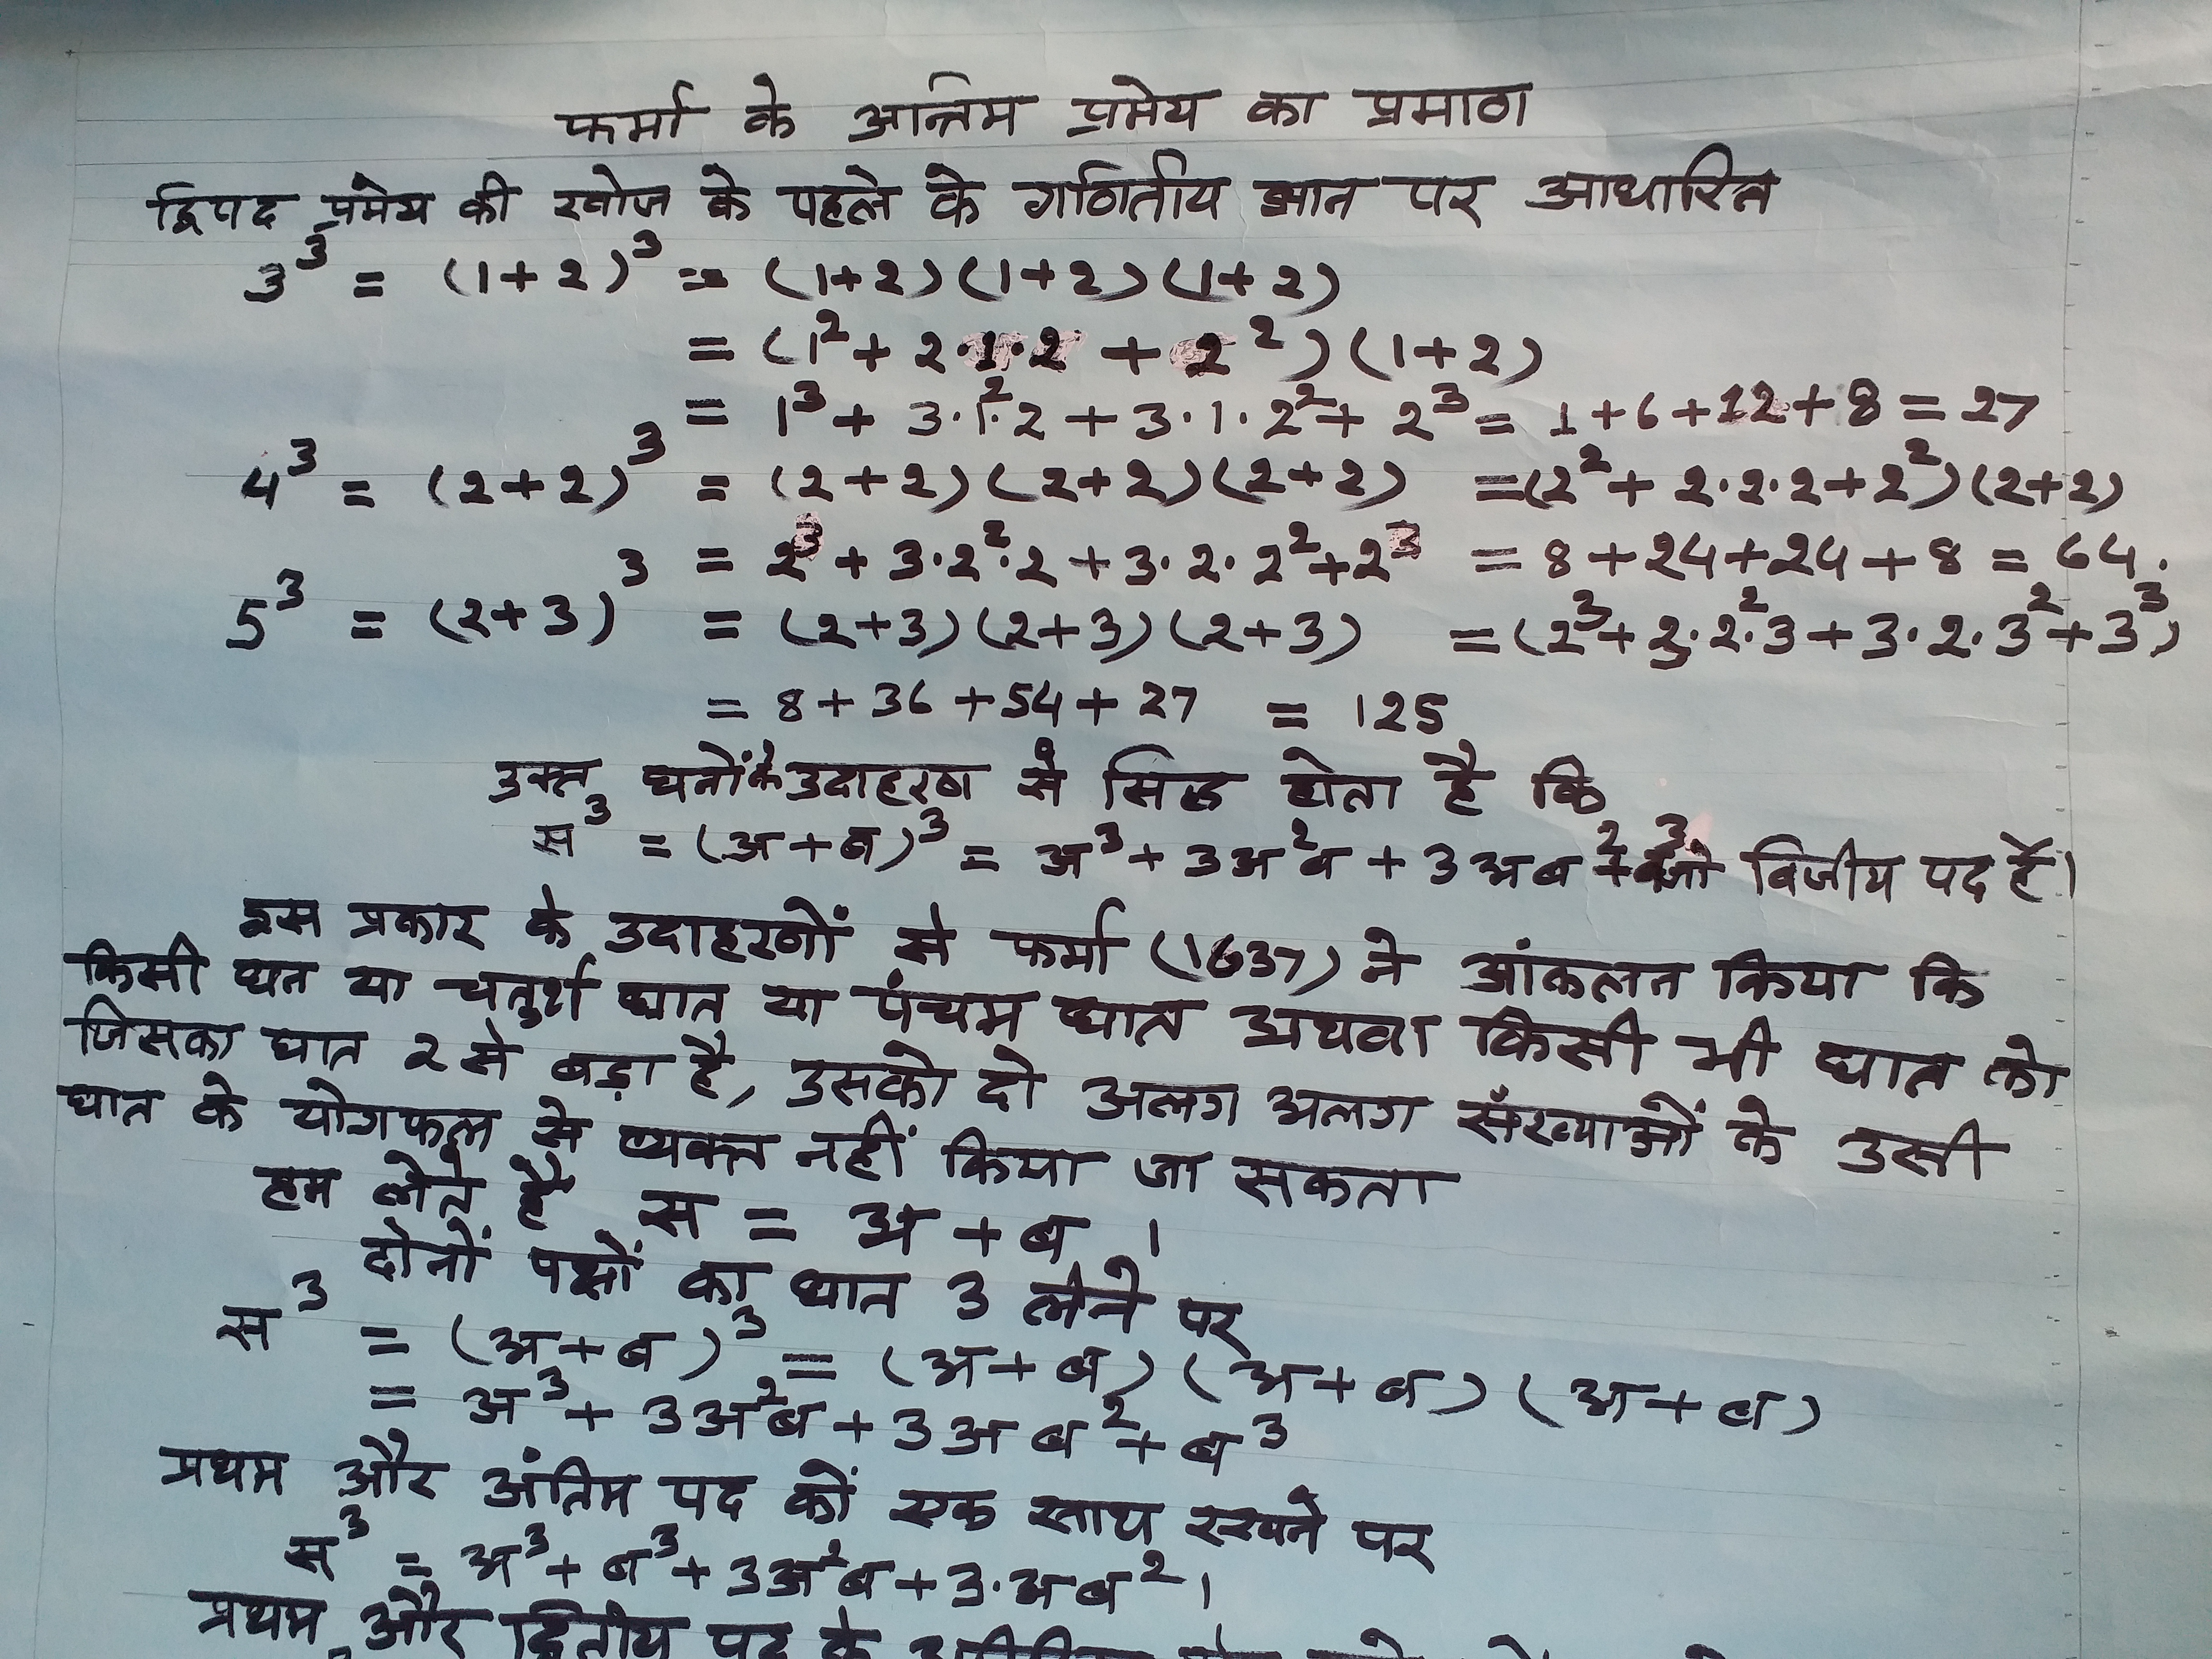 फर्मा के अन्तिम प्रमेय का प्रमाण
द्विपद प्रमेय की खोज के पहले के गणितीय ज्ञान पर आधारित
3³ = (1+2)³ = (1+2)(1+2)(1+2)
= (1² + 2·1·2 + 2²)(1+2)
= 1³ + 3·1²·2 + 3·1·2² + 2³ = 1+6+12+8 = 27
4³ = (2+2)³ = (2+2)(2+2)(2+2) =(2² + 2·2·2+2²)(2+2)
= 2³ + 3·2²·2 + 3·2·2²+2³ = 8+24+24+8 = 64.
5³ = (2+3)³ = (2+3)(2+3)(2+3) =(2³+3·2²·3+3·2·3²+3³)
= 8+36+54+27 = 125
उक्त घनों के उदाहरण से सिद्ध होता है कि
स³ = (अ+ब)³ = अ³ + 3अ²ब + 3अब²+ब³ जो बिजीय पद हैं।
इस प्रकार के उदाहरणों से फर्मा (1637) ने आंकलन किया कि
किसी घन या चतुर्थ घात या पंचम घात अथवा किसी भी घात को
जिसका घात 2 से बड़ा है, उसको दो अलग अलग संख्याओं के उसी
घात के योगफल से व्यक्त नहीं किया जा सकता
हम लेते है स = अ + ब ।
दोनों पक्षों का घात 3 लेने पर
स³ = (अ+ब)³ = (अ+ब)(अ+ब)(अ+ब)
= अ³ + 3अ²ब + 3अब² + ब³
प्रथम और अंतिम पद कों एक साथ रखने पर
स³ = अ³ + ब³ + 3अ²ब + 3·अब² ।
प्रथम और द्वितीय पद के